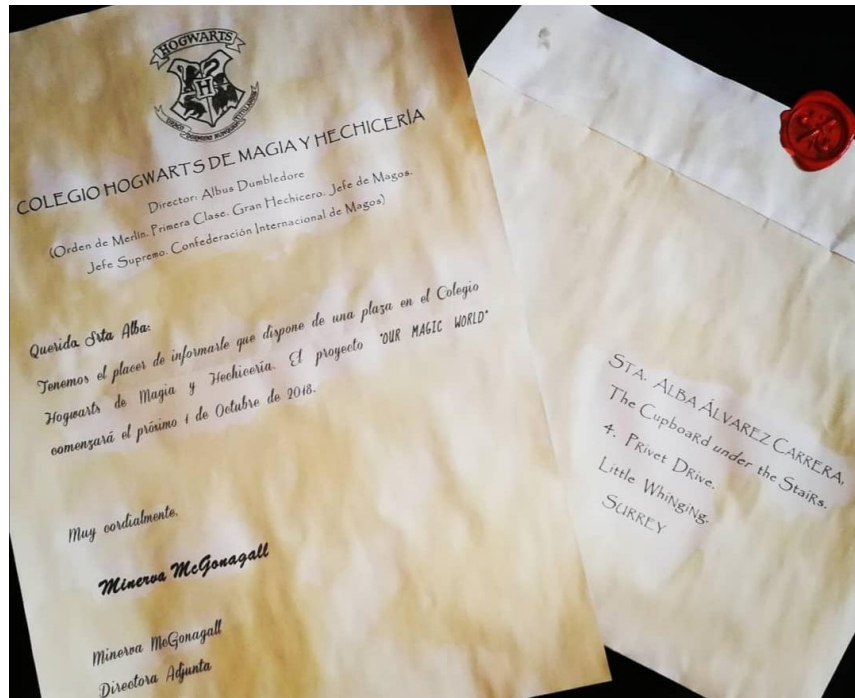 HOGWARTS
H
DRACO DORMIENS NUNQUAM TITILLANDUS
COLEGIO HOGWARTS DE MAGIA Y HECHICERÍA
Director: Albus Dumbledore
(Orden de Merlín, Primera Clase, Gran Hechicero, Jefe de Magos,
Jefe Supremo, Confederación Internacional de Magos)
Querida Srta Alba:
Tenemos el placer de informarle que dispone de una plaza en el Colegio
Hogwarts de Magia y Hechicería. El proyecto "OUR MAGIC WORLD"
comenzará el próximo 1 de Octubre de 2018.
Muy cordialmente,
Minerva McGonagall
Minerva McGonagall
Directora Adjunta
STA. ALBA ÁLVAREZ CARRERA,
The CupboaRd under the StaiRs,
4, PRivet DRive,
Little WhiNgiNg,
SURREY